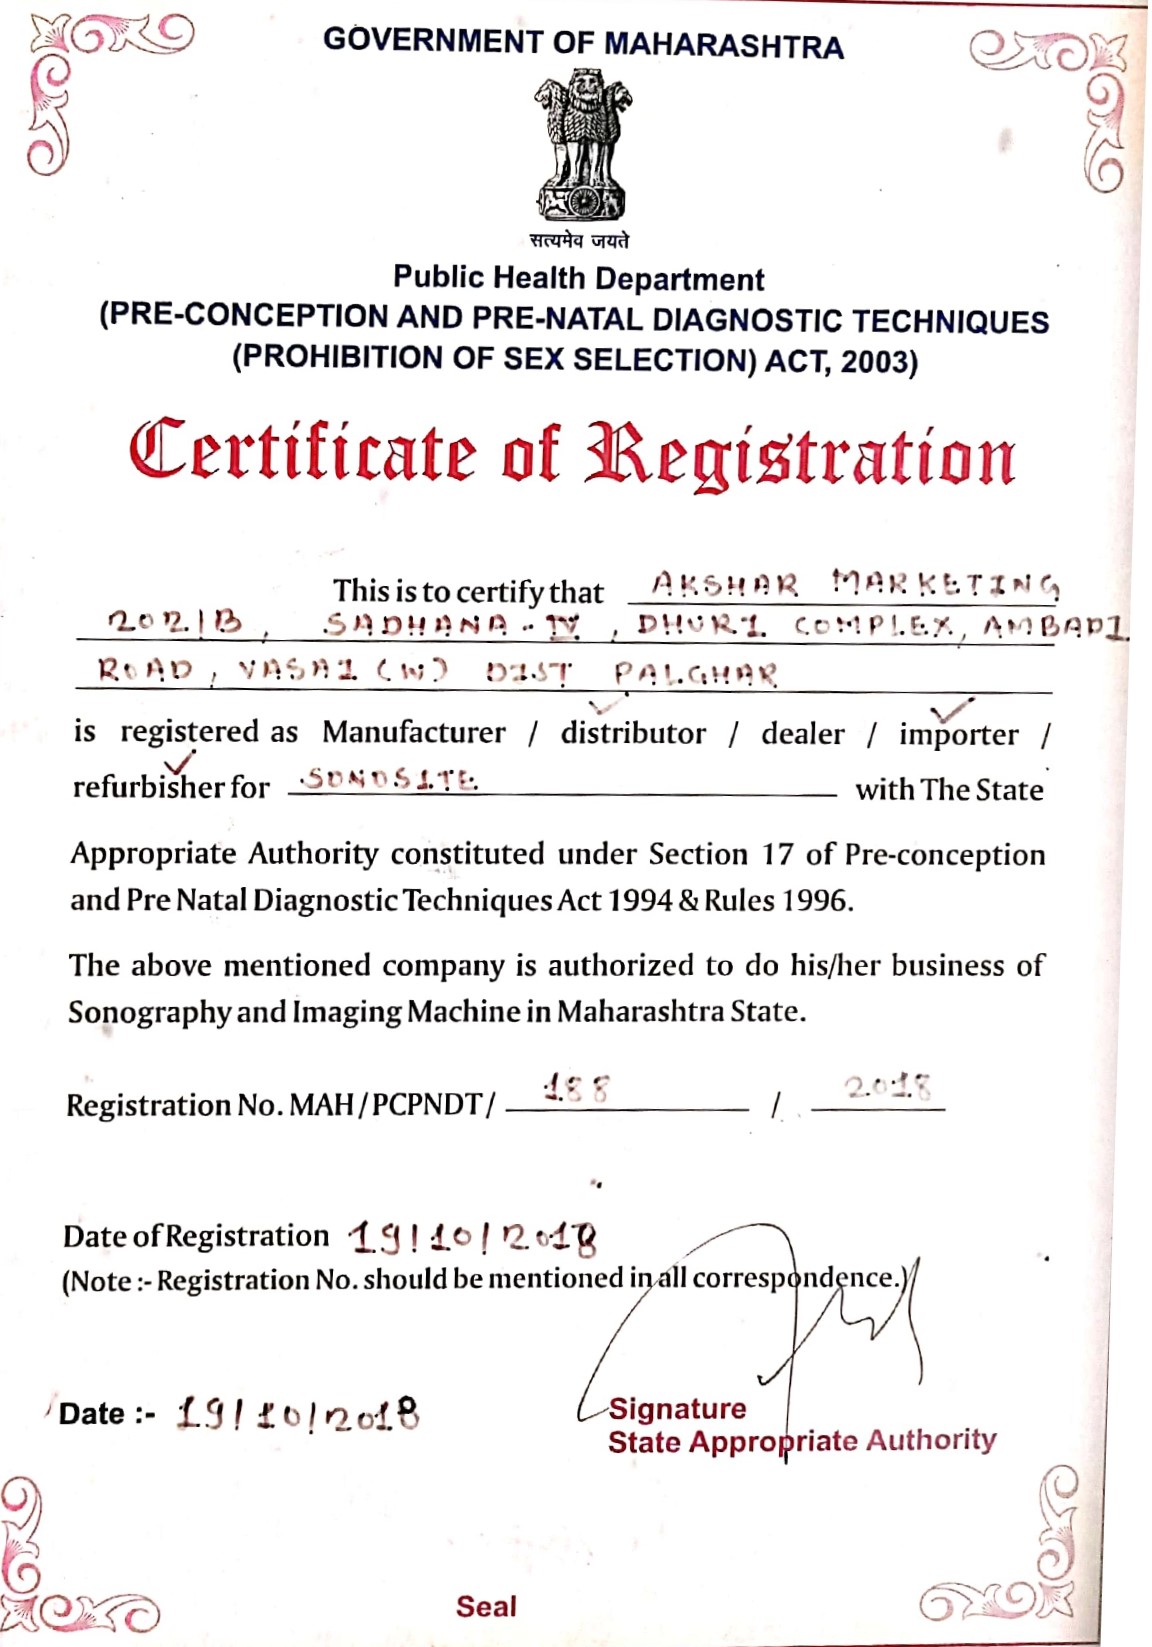 GOVERNMENT OF MAHARASHTRA
सत्यमेव जयते
Public Health Department
(PRE-CONCEPTION AND PRE-NATAL DIAGNOSTIC TECHNIQUES
(PROHIBITION OF SEX SELECTION) ACT, 2003)
Certificate of Registration
This is to certify that AKSHAR MARKETING
202/B, SADHANA-IV, DHURI COMPLEX, AMBADI
ROAD, VASAI (W) DIST PALGHAR
is registered as Manufacturer / distributor / dealer / importer /
refurbisher for SONOSITE with The State
Appropriate Authority constituted under Section 17 of Pre-conception
and Pre Natal Diagnostic Techniques Act 1994 & Rules 1996.
The above mentioned company is authorized to do his/her business of
Sonography and Imaging Machine in Maharashtra State.
Registration No. MAH / PCPNDT / 188 / 2018
Date of Registration 19/10/2018
(Note :- Registration No. should be mentioned in all correspondence.)
Date :- 19/10/2018
Signature
State Appropriate Authority
Seal